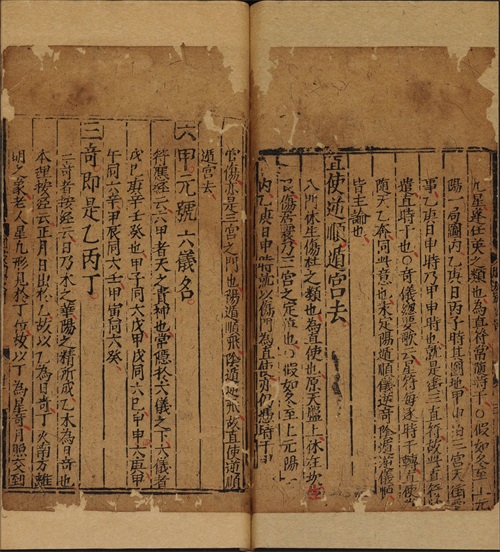 九星蓬任英之類也為直符常隨時干○假如冬至上元
陽一局圖內乙庚日丙子時其圖地甲申泊三宮天衝
事乙庚日申時乃甲申時也就是衝三直符故此直符
遣直時干也○奇儀總要歌云星符每逐時干轉直使
隨天乙奔同此意也未定陽遁順儀逆奇陰遁逆儀順
皆主論也
直使逆順遁宮去
八門休生傷杜之類也為直使也原天盤上休在坎
艮傷居震乃三宮之定位也○假如冬至上元陽一
內乙庚日申時就以傷門為直使仍憑時干甲
宮傷亦是三宮之門也陽遁順飛陰遁逆飛故直使逆順
遁宮去
六甲元號六儀名
符應經云六甲者天之貴神也常隱於六儀之下六儀者
戊己庚辛壬癸也甲子同六戊甲戌同六己甲申同六庚甲
午同六辛甲辰同六壬甲寅同六癸
三奇即是乙丙丁
三奇者按經云日乃木之華陽之精所成乙木為日奇也
本理按經云正月日出於乙故以乙為日奇丁火南方離
明之象老人星九形見於丁位故以丁為星奇月照文到